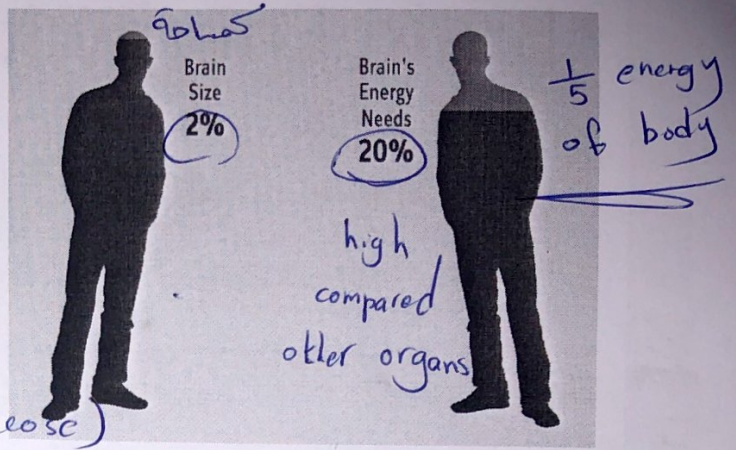 كمساحة
Brain
Size
2%
Brain's
Energy
Needs
20%
1/5 energy
of body
high
compared
other organs